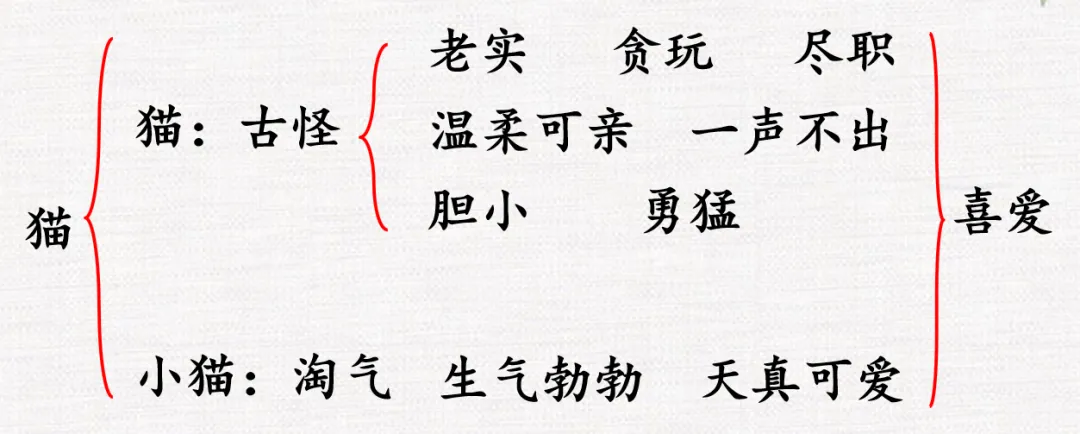 老实 贪玩 尽职
猫：古怪
温柔可亲 一声不出
胆小 勇猛
猫
喜爱
小猫：淘气 生气勃勃 天真可爱